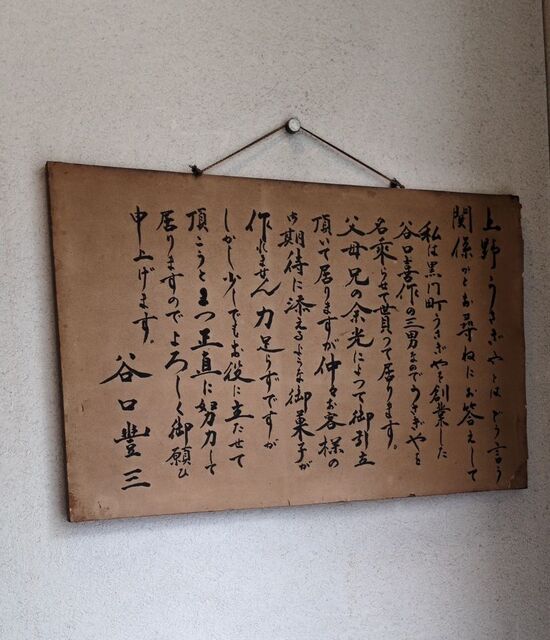 上野うさぎやとはどう言う
関係かとお尋ねにお答えして
私は黒門町うさぎやを創業した
谷口喜作の三男なのでうさぎやを
名乗らせて貰って居ります。
父母兄の余光によって御引立
頂いて居りますが仲々お客様の
御期待に添えるような御菓子が
作れません力足らずですが
しかし少しでもお役に立たせて
頂こうと 正直に努力して
居りますのでよろしく御願ひ
申上げます。
谷口豐三